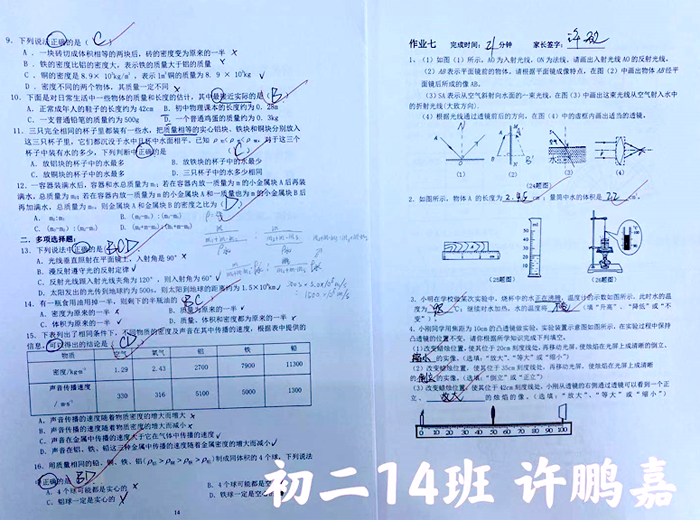 9. 下列说法正确的是（ C ）
A．一块砖切成体积相等的两块后，砖的密度变为原来的一半 ×
B．铁的密度比铝的密度大，表示铁的质量大于铝的质量 ×
C．铜的密度是8.9×10³kg/m³，表示1m³铜的质量为8.9×10³kg √
D．密度不同的两个物体，其质量一定不同 ×
10. 下面是对日常生活中一些物体的质量和长度的估计，其中最接近实际的是（ B ）
A．正常成年人的鞋子的长度约为42cm B．初中物理课本的长度约为0.28m
C．一支普通铅笔的质量约为500g D．一个普通鸡蛋的质量约为0.3kg
11. 三只完全相同的杯子里都装有一些水，把质量相等的实心铝块、铁块和铜块分别放入
这三只杯子里，它们都沉没于水中且杯中水面相平，已知
子中装有水的多少，下列判断正确的是（ C ）
A．放铝块的杯子中的水最多 B．放铁块的杯子中的水最少
C．放铜块的杯子中的水最多 D．三只杯子中的水多少相同
12. 一容器装满水后，容器和水总质量为m₁；若在容器内放一质量为m的小金属块A后再装
满水，总质量为m₂；若在容器内放一质量为m的小金属块A和一质量也为m的小金属块B后
再加满水，总质量为m₃，则金属块A和金属块B的密度之比为（ D ）
二、多项选择题：
13. 下列说法中正确的是 BCD
A．光线垂直照射在平面镜上，入射角是90° ×
B．漫反射遵守光的反射定律 √
C．反射光线跟入射光线夹角为120°，则入射角为60° √
D．太阳发出的光传到地球约为500s，则太阳到地球的距离约为1.5×10⁸km √
14. 有一瓶食用油用掉一半，则剩下的半瓶油的 BC
A．密度为原来的一半 × B．质量为原来的一半 √
C．体积为原来的一半 √ D．质量、体积和密度都为原来的一半 ×
15. 下表列出了相同条件下，不同物质的密度及声音在其中传播的速度，根据表中提供的
信息，可以得出的结论是（ CD ）
物质 空气 氧气 铝 铁 铅
密度/kg·m⁻³ 1.29 2.43 2700 7900 11300
声音传播速度
/ms⁻¹ 330 316 5100 5000 1300
A．声音传播的速度随着物质密度的增大而增大 ×
B．声音传播的速度随着物质密度的增大而减小 ×
C．声音在金属中传播的速度大于它在气体中传播的速度 √
D．声音在铝、铁、铅这三种金属中传播的速度随着金属密度的增大而减小 √
16. 用质量相同的铅、铜、铁、铝（ρ铅＞ρ铜＞ρ铁＞ρ铝）制成同体积的4个球，下列说法
中正确的是 BD
A．4个球可能都是实心的 × B．4个球可能都是空心的
C．铅球一定是实心的 × D．铁球一定是空心的
14
作业七 完成时间：21分钟 家长签字：
1、（1）如图（1）所示，AO为入射光线，ON为法线，请画出入射光线AO的反射光线。
（2）AB表示平面镜前的物体，请根据平面镜成像特点，在图（2）中画出物体AB经平
面镜后所成的像AB。
（3）SA表示从空气斜射向水面的一束光线，在图（3）中画出这束光线从空气射入水
中的折射光线（大致方向）。
（4）根据光线通过透镜前后的方向，在图（4）中的虚框内画出适当的透镜。
（1） （2） （3） （4）
（24题图）
2. 如图所示，物体A的长度为 2.45 cm；量筒中水的体积是 22
（25题图） （26题图）
3. 小明在学校做某次实验中，烧杯中的水正在沸腾，温度计的示数如图所示，此时水的温
度为 98 ℃，继续对水加热，水的温度将 不变 （填“升高”、“降低”或“不
变”）
4. 小刚同学用焦距为10cm的凸透镜做实验，实验装置示意图如图所示，在实验过程中保持
凸透镜的位置不变，请你根据所学知识完成下列填空。
(1)改变蜡烛位置，使其位于20cm刻度线处，再移动光屏，使烛焰在光屏上成清晰的倒立、
缩小 的实像。（选填：“放大”、“等大”或“缩小”）
(2)改变蜡烛位置，使其位于35cm刻度线处，再移动光屏，使烛焰在光屏上成清晰
的 倒立 的实像。（选填：“倒立”或“正立”）
(3)改变蜡烛位置，使其位于42cm刻度线处，小刚从透镜的右侧通过透镜可以看到一个正
立、 放大 的烛焰的像。（选填：“放大”、“等大”或“缩小”）
0 10 20 30 40 50 60 70 80 90 100
初二14班 许鹏嘉